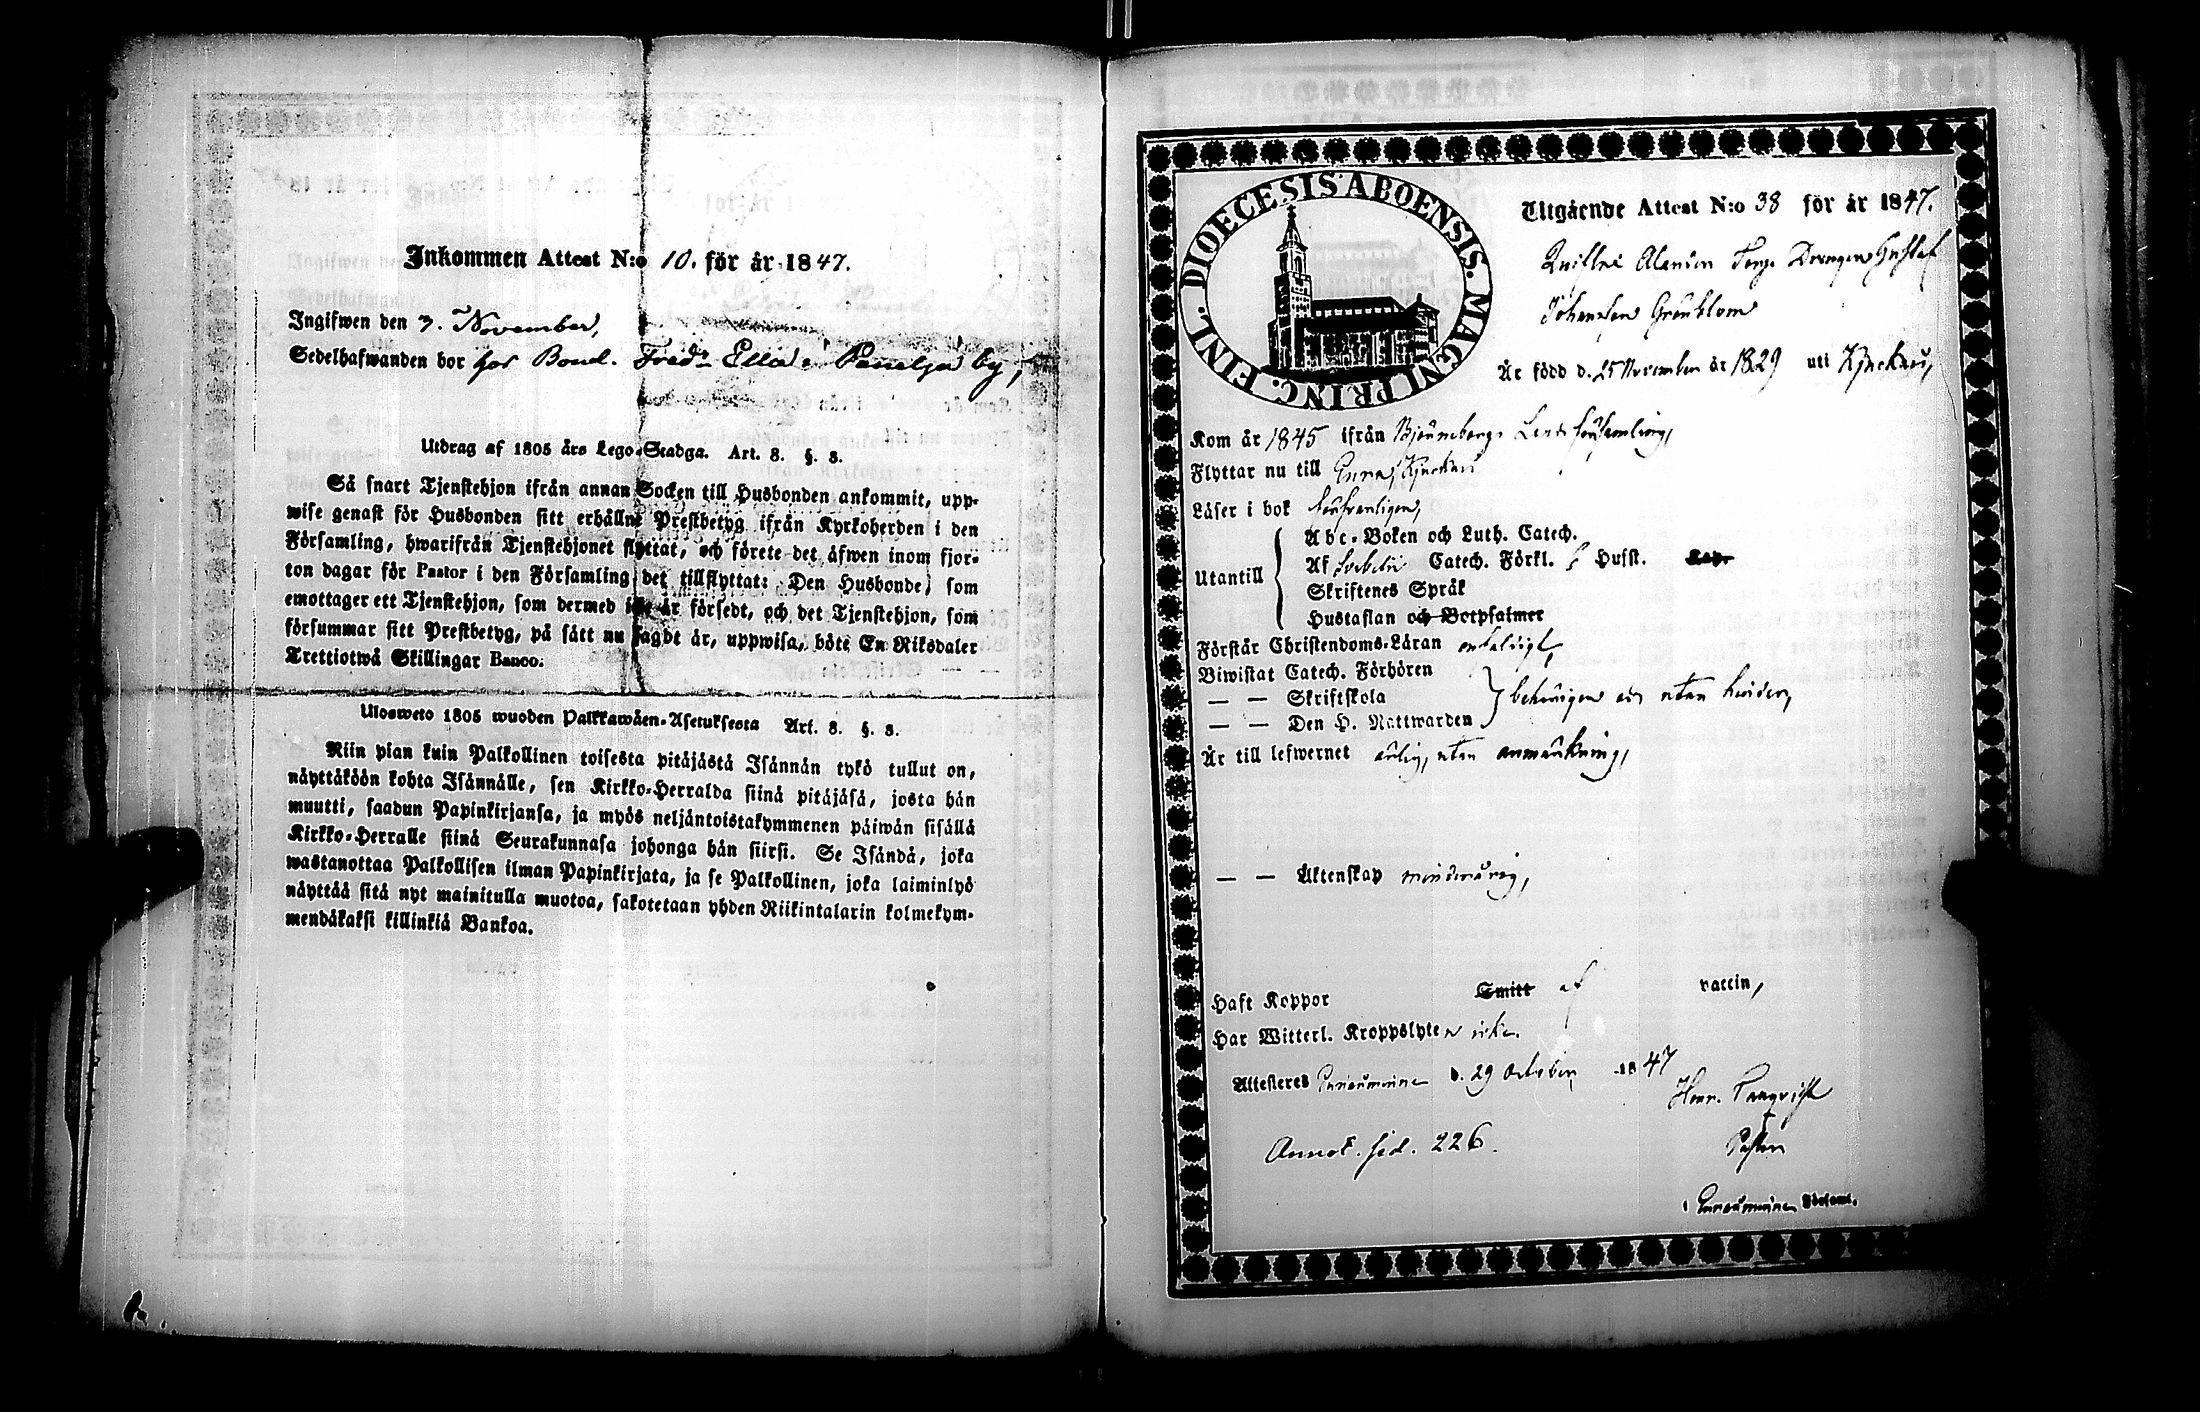 Inkommen Attest N:o 10. för år 1847.
Ingifwen den 3. November,
Sedelhafwanden bor hos Bond. Fredr. Ella i Panelja by,
Utdrag af 1805 års Lego-Stadga. Art. 8. §. 8.
Så snart Tjenstehjon ifrån annan Socken till Husbonden ankommit, upp-
wise genast för Husbonden sitt erhållne Prestbetyg ifrån Kyrkoherden i den
Församling, hwarifrån Tjenstehjonet flyttat, och förete det äfwen inom fjor-
ton dagar för Pastor i den Församling det tillflyttat: Den Husbonde, som
emottager ett Tjenstehjon, som dermed icke är försedt, och det Tjenstehjon, som
försummar sitt Prestbetyg, på sätt nu sagdt är, uppwisa, böte En Riksdaler
Trettiotwå Skillingar Banco.
Ulosweto 1805 wuoden Palkkawäen-Asetuksesta Art. 8. §. 8.
Niin pian kuin Palkollinen toisesta pitäjästä Isännän tykö tullut on,
näyttäköön kohta Isännälle, sen Kirkko-Herralda siinä pitäjäsä, josta hän
muutti, saadun Papinkirjansa, ja myös neljäntoistakymmenen päiwän sisällä
Kirkko-Herralle siinä Seurakunnasa johonga hän siirsi. Se Isändä, joka
wastanottaa Palkollisen ilman Papinkirjata, ja se Palkollinen, joka laiminlyö
näyttää sitä nyt mainitulla muotoa, sakotetaan yhden Riikintalarin kolmekym-
mendäkaksi killinkiä Bankoa.
DIOECESIS ABOENSIS. MAGNI PRINC. FINL.
Utgående Attest N:o 38 för år 1847.
Drengen Gustaf
Johansson Grönblom
Är född d. 25 November år 1829 uti Kjuckais,
Kom år 1845 ifrån Björneborgs Lands församling,
Flyttar nu till Eura, Kjuckais
Läser i bok försvarligen,
Utantill
Abc-Boken och Luth. Catech.
Af Svebelii Catech. Förkl. Husst. Kap.
Skriftenes Språk
Hustaflan och Botpsalmer
Förstår Christendoms-Läran enfaldigt,
Biwistat Catech. Förhören
— — Skriftskola
behörigen och utan hinder,
— — Den H. Nattwarden
Är till lefwernet ärlig, utan anmärkning,
— — Äktenskap minderårig,
Haft Koppor Smitt af vaccin,
Har Witterl. Kroppslyten icke.
Attesteres Euraåminne d. 29 October 1847
Henr.
Pastor
Annot. sid. 226.
i Euraåminne Församl.